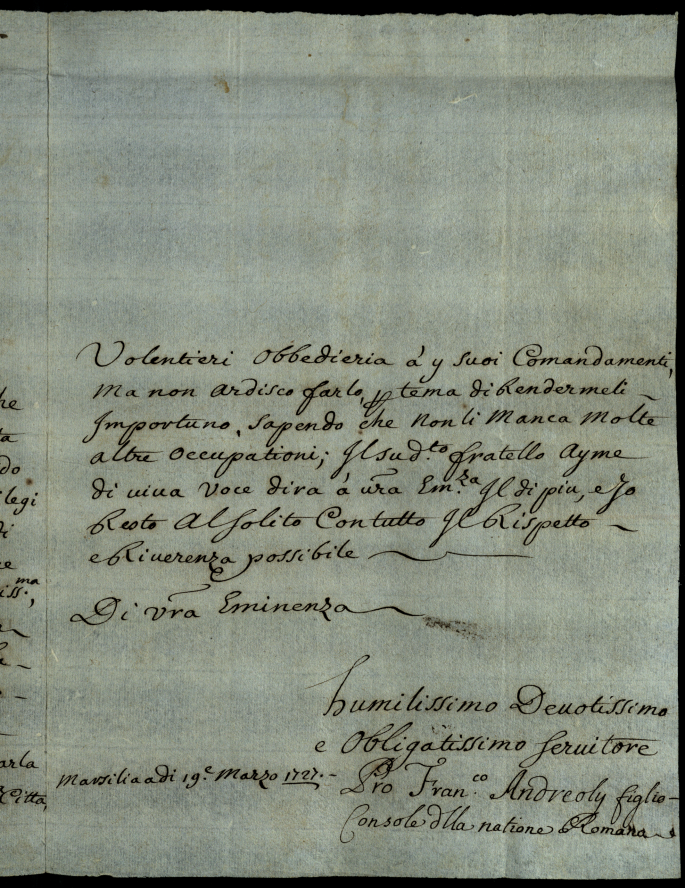 he
ta
do
ilegi
di
ce
iss.ma,
arla
Città,
Volentieri Obbedieria à y suoi Comandamenti,
Ma non ardisco farlo, p tema di Rendermeli
Importuno, sapendo che non li Manca Molte
altre Occupationi; Il sud.to fratello Ayme
di viva Voce dira à vra Em.za Il di piu, e Jo
Resto Al solito Con tutto Il Rispetto
e Riverenza possibile
Di vra Eminenza
humilissimo Devotissimo
e Obligatissimo servitore
Marsilia adi 19.e Marzo 1727.
Pro Fran.co Andreoly figlio
Console dlla natione Romana